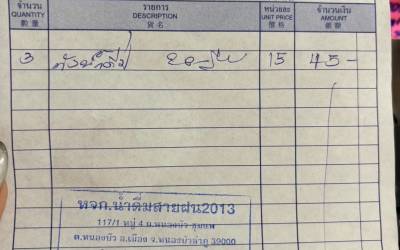 จำนวน รายการ หน่วยละ จำนวนเงิน
QUANTITY DESCRIPTION UNIT PRICE AMOUNT
數量 貨名 價格 銀額
3 ถังน้ำดื่ม 15 45-
หจก.น้ำดื่มสายฝน2013
117/1 หมู่ 4 ถ.หนองบัว-ชุมแพ
ต.หนองบัว อ.เมือง จ.หนองบัวลำภู 39000